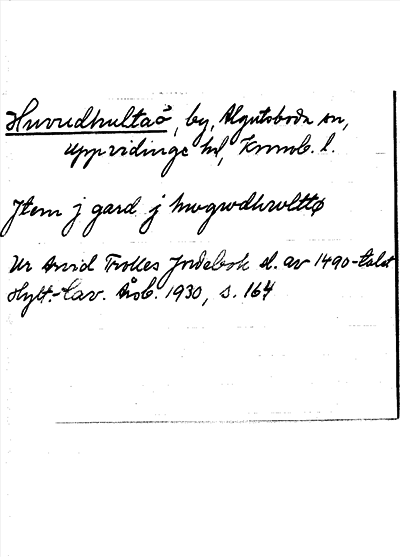 Huvudhultaö, by, Algutsboda sn,
Uppvidinge hd, Kronob. l.
Jtem j gard j hwgwdhwlttø
Ur Arvid Trolles Jordebok d. av 1490-talet
Hylt.-Cav. Årsb. 1930, s. 164